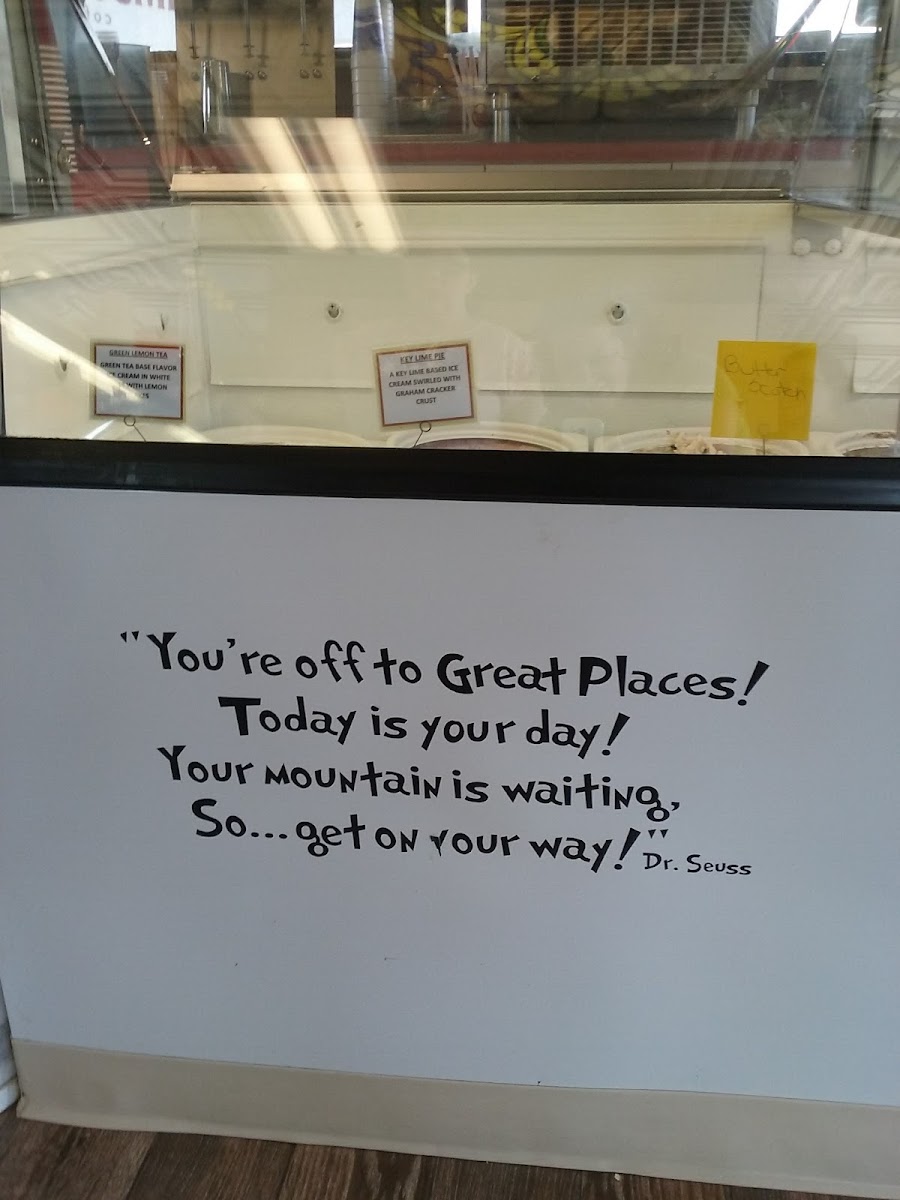 GREEN LEMON TEA
GREEN TEA BASE FLAVOR
CREAM IN WHITE
WITH LEMON
KEY LIME PIE
A KEY LIME BASED ICE
CREAM SWIRLED WITH
GRAHAM CRACKER
CRUST
Butter
scotch
"You're off to Great Places!
Today is your day!
Your mountain is waiting,
So... get on your way!"
Dr. Seuss